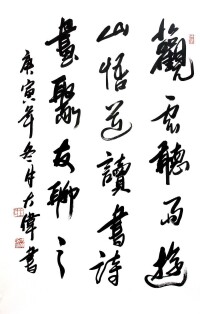 觀雲聽雨遊
山悟道讀書詩
畫聚友聊之
庚寅年冬月大偉書